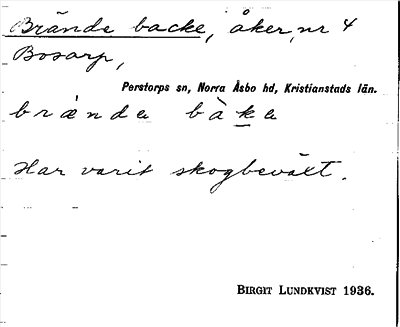 Brände backe, åker, nr 4
Bosarp,
Perstorps sn, Norra Åsbo hd, Kristianstads län.
brända bàka
Har varit skogbeväxt.
BIRGIT LUNDKVIST 1936.